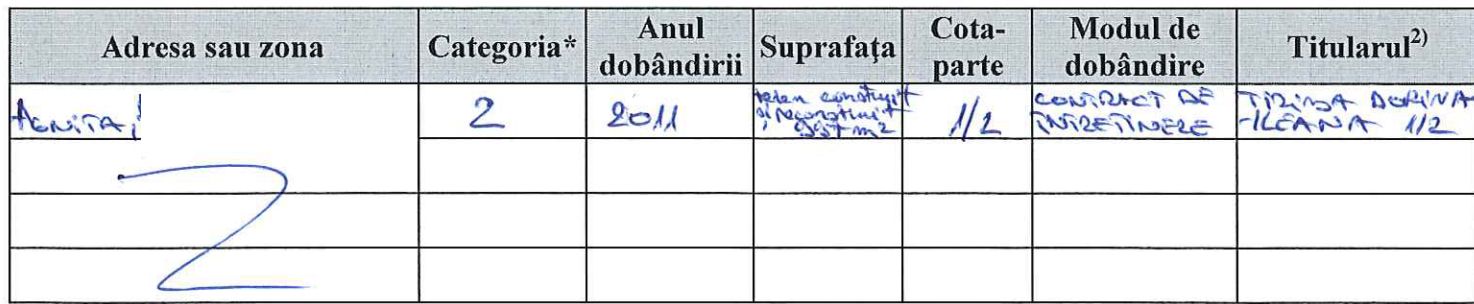 Adresa sau zona Categoria* Anul dobândirii Suprafaţa Cota-parte Modul de dobândire Titularul2)
AGNITA, 2 2011 teren construit 1/2 CONTRACT DE
și neconstruit ÎNTREȚINERE
m2 -ILEANA 1/2